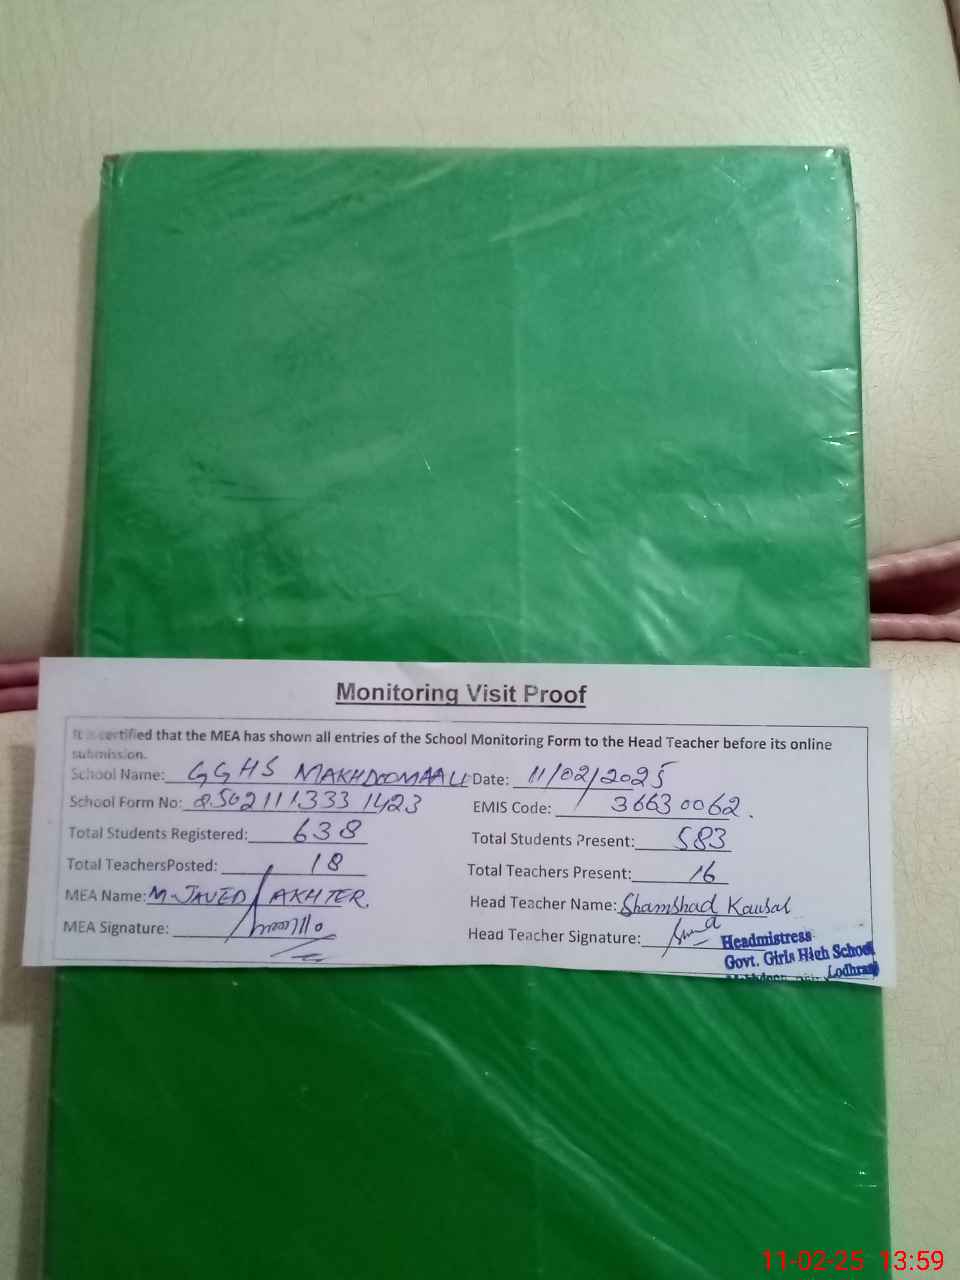 Monitoring Visit Proof
It is certified that the MEA has shown all entries of the School Monitoring Form to the Head Teacher before its online
submission.
School Name: GGHS MAKHDOOMAALI Date: 11/02/2025
School Form No: 85021113331423 EMIS Code: 36630062.
Total Students Registered: 638 Total Students Present: 583
Total TeachersPosted: 18 Total Teachers Present: 16
MEA Name: M. JAVED AKHTER. Head Teacher Name: Shamshad Kausar
MEA Signature: Head Teacher Signature:
Headmistress
Govt. Girls High School
Lodhran
11-02-25 13:59